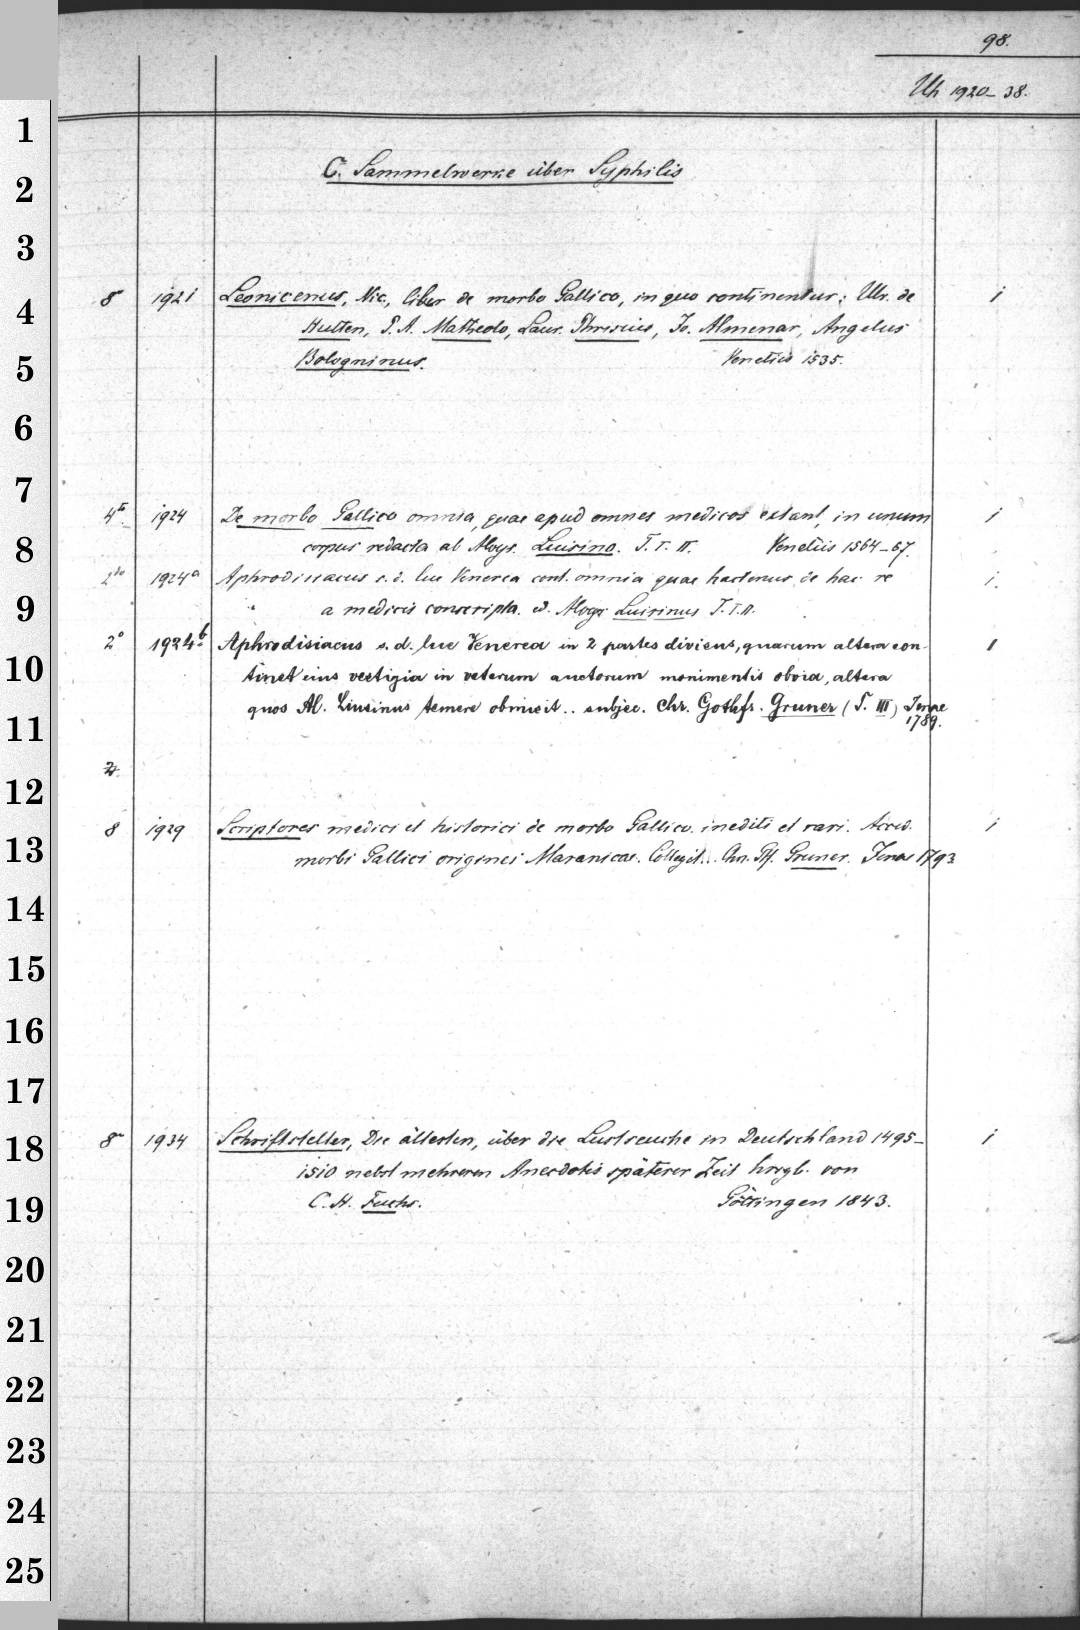 98.
Uh 1920-38.
C. Sammelwerke über Syphilis
8° 1921 Leonicenus, Nic, liber de morbo Gallico, in quo continentur: Ulr. de 1
Hutten, P. A. Matheolo, Laur. Phrisius, Jo. Almenar, Angelus
Bologninus. Venetiis 1535.
4to 1924 De morbo Gallico omnia, quae apud omnes medicos extant, in unum 1
corpus redacta ab Aloys. Luisino. T. I. II. Venetiis 1564-67.
2to 1924a Aphrodisiacus s. d. lue Venerea cont. omnia quae hactenus de hac re 1.
a medicis conscripta. ed. Aloys Luisinus T. I. II.
2° 1924b. Aphrodisiacus s. d. lue Venerea in 2 partes divisus, quarum altera con-
tinet eius vestigia in veterum auctorum monimentis obvia, altera
quos Al. Luisinus temere obmisit.. subjec. Chr. Gothfr. Gruner (T. III) Jenae
1789.
8 1929 Scriptores medici et historici de morbo Gallico inediti et rari. Acced. 1
morbi Gallici origines Maranicae. Collegit.. Chn. Gf. Gruner. Jenae 1793
8° 1934 Schriftsteller, Die ältesten, über die Lustseuche in Deutschland 1495- 1
1510 nebst mehreren Anecdotis späterer Zeit hrsgb. von
C. H. Fuchs. Göttingen 1843.
1
2
3
4
5
6
7
8
9
10
11
12
13
14
15
16
17
18
19
20
21
22
23
24
25